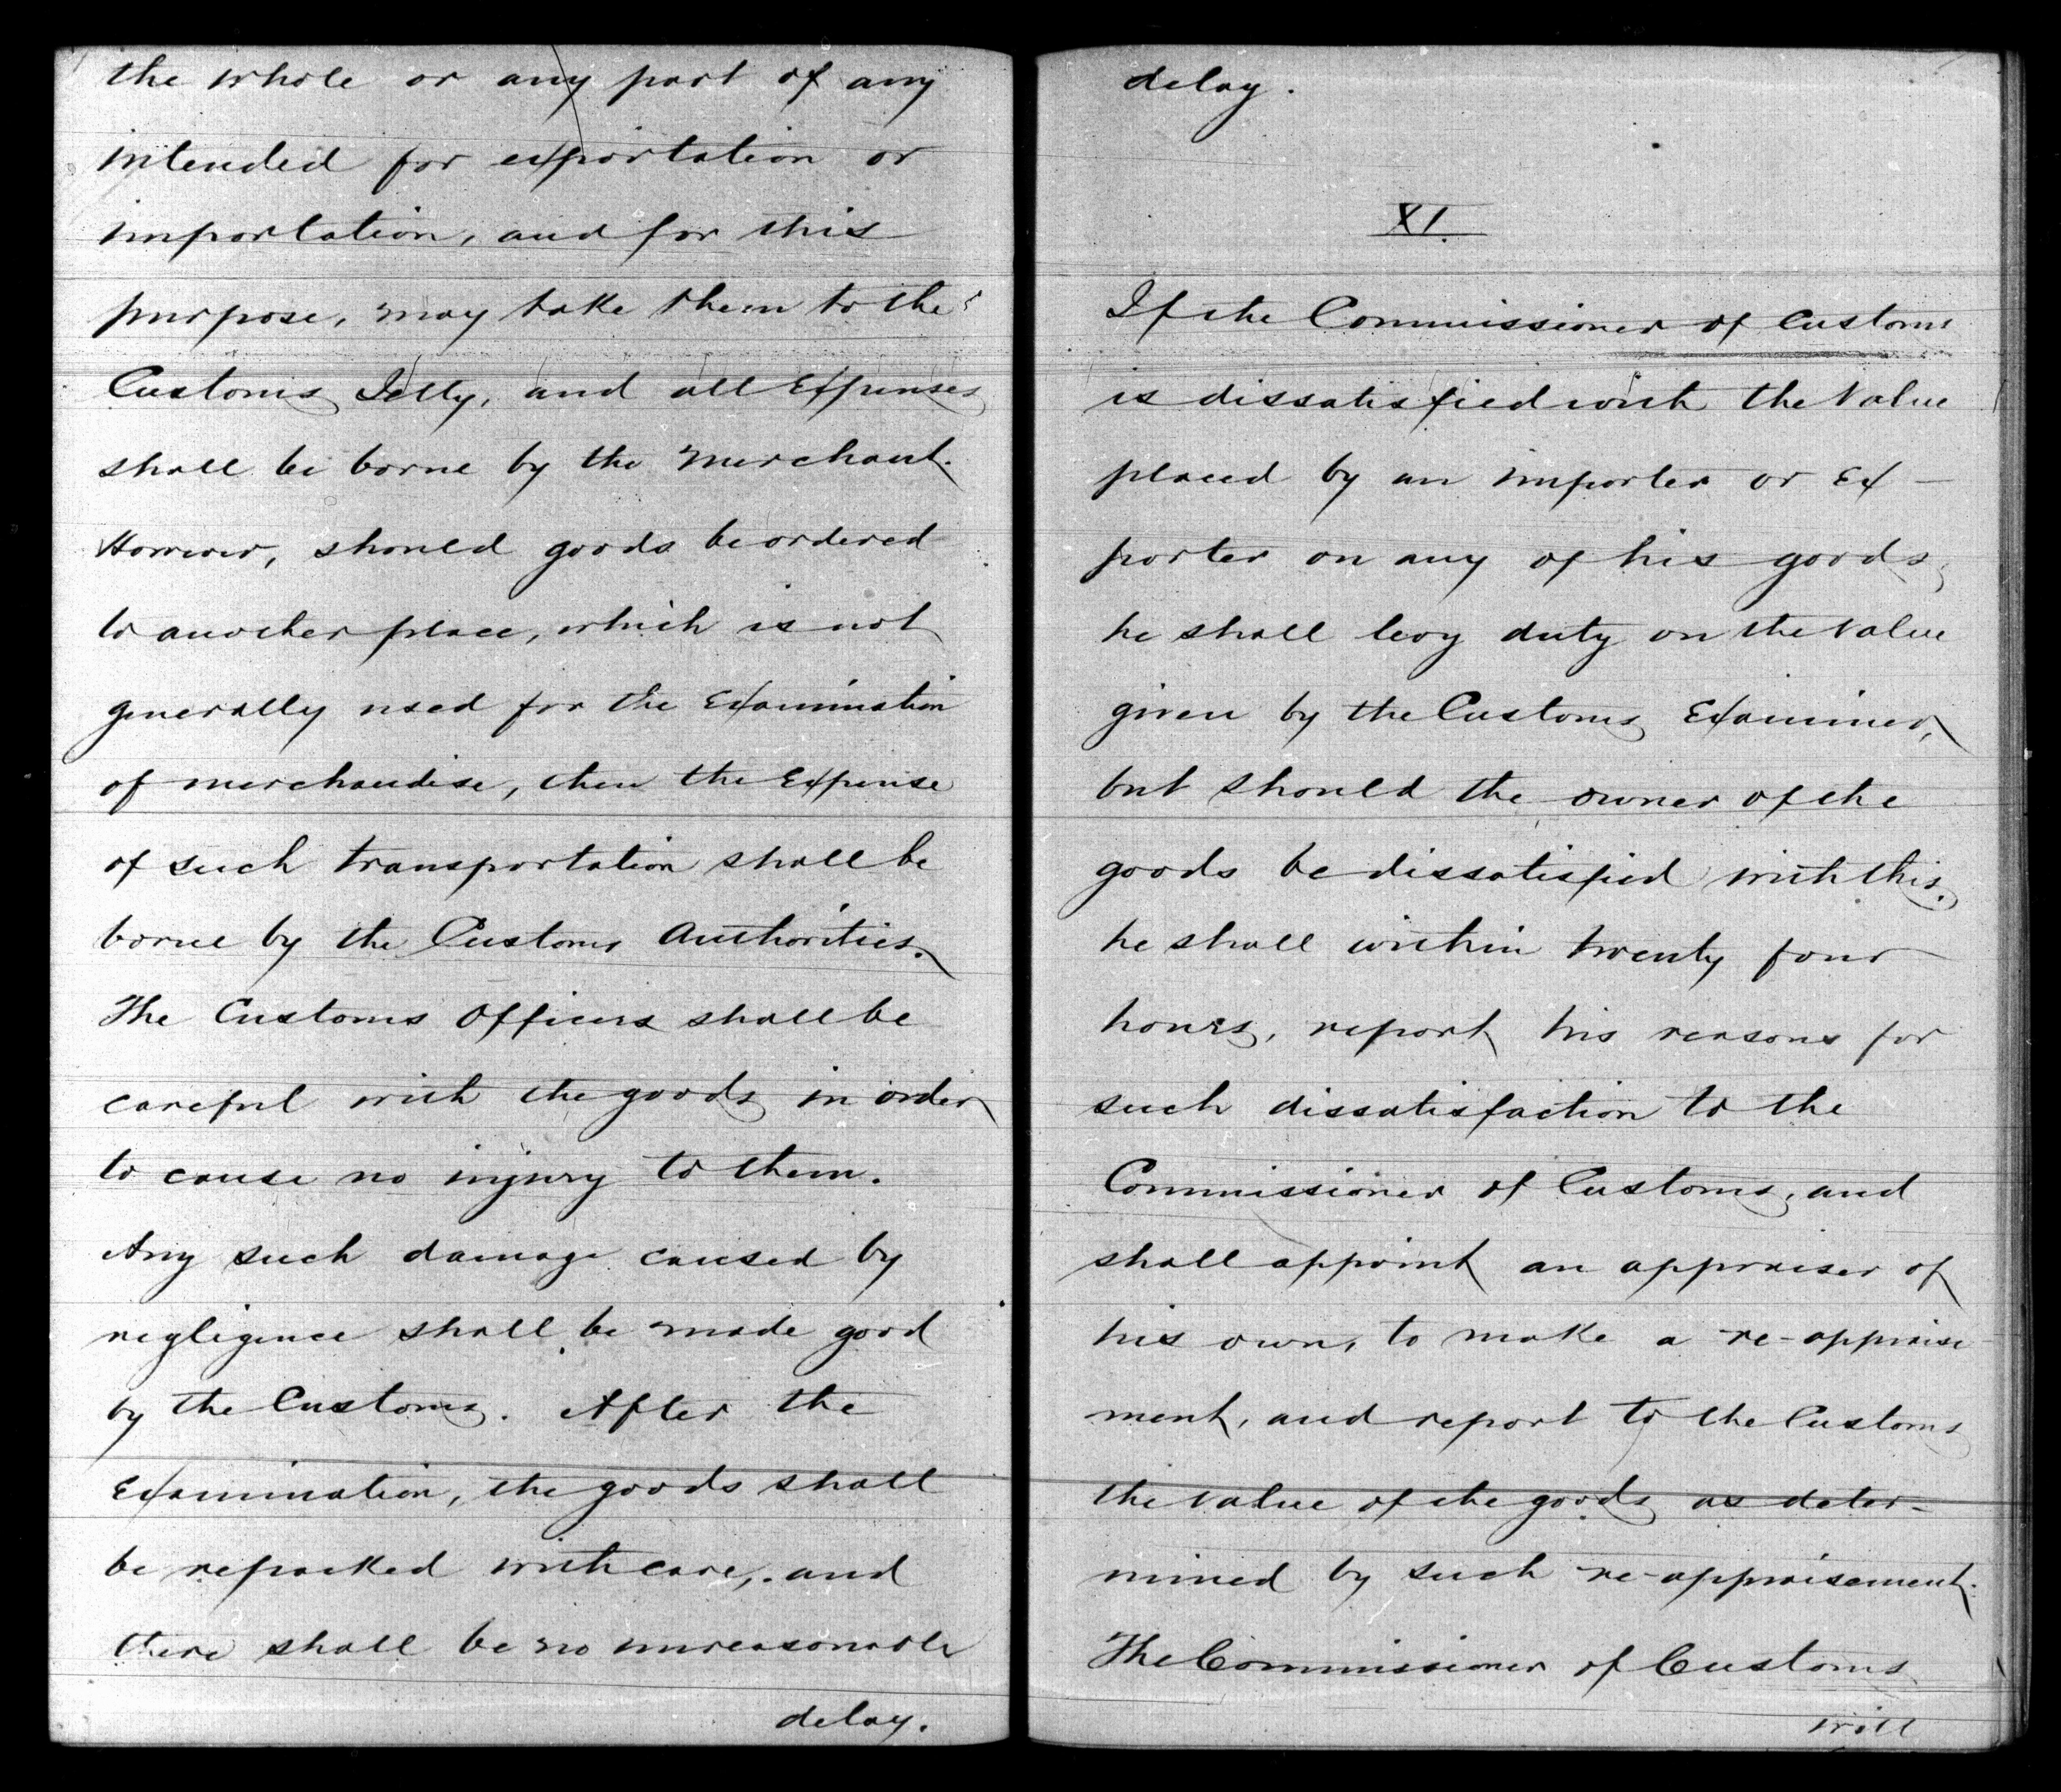 the whole or any part of any
intended for exportation or
importation, and for this
purpose, may take them to the
Customs Jetty, and all Expenses
shall be borne by the Merchant.
However, should goods be ordered
to another place, which is not
generally used for the Examination
of merchandise, then the Expense
of such transportation shall be
borne by the Customs Authorities.
The Customs Officers shall be
careful with the goods in order
to cause no injury to them.
Any such damage caused by
negligence shall be made good
by the Customs. After the
Examination, the goods shall
be repacked with care, and
there shall be no unreasonable
delay.
delay.
XI.
If the Commissioner of Customs
is dissatisfied with the Value
placed by an importer or Ex-
porter on any of his goods,
he shall levy duty on the Value
given by the Customs Examiner,
but should the owner of the
goods be dissatisfied with this,
he shall within twenty four
hours, report his reasons for
such dissatisfaction to the
Commissioner of Customs, and
shall appoint an appraiser of
his own, to make a re-appraise
ment, and report to the Customs
the value of the goods as deter-
mined by such re-appraisement.
The Commissioner of Customs
will